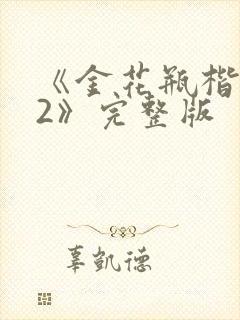 《金花瓶楷
2》完整版
辜凯德